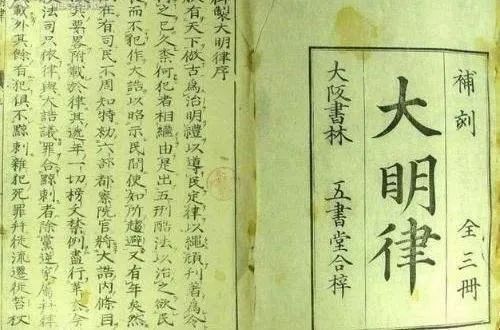 補刻
全三冊
大明律
大阪書林 五書堂合梓
製大明律序
有天下倣古爲治明禮以導民定律以繩頑刊著爲令
之已久奈何犯者相繼由是出五刑酷法以治之欲民
而不犯作大誥以昭示民間使知所趨避又有年矣然
在有司民不周知特勑六部都察院官將大誥内條目
要畧附載於律其遞年一切榜文禁例盡行革去今
法司只依律與大誥議罪合黥刺者除黨逆家屬幷律
載外其餘有犯俱不黥刺雜犯死罪幷徒流遷徙笞杖